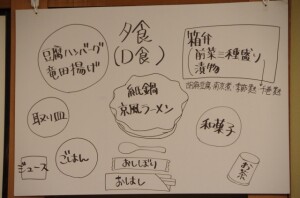 夕食
(D食)
豆腐ハンバーグ
竜田揚げ
箱弁
前菜三種盛り
漬物
紙鍋
京風ラーメン
取り皿
和菓子
ジュース
ごはん
おしぼり
おはし
お茶